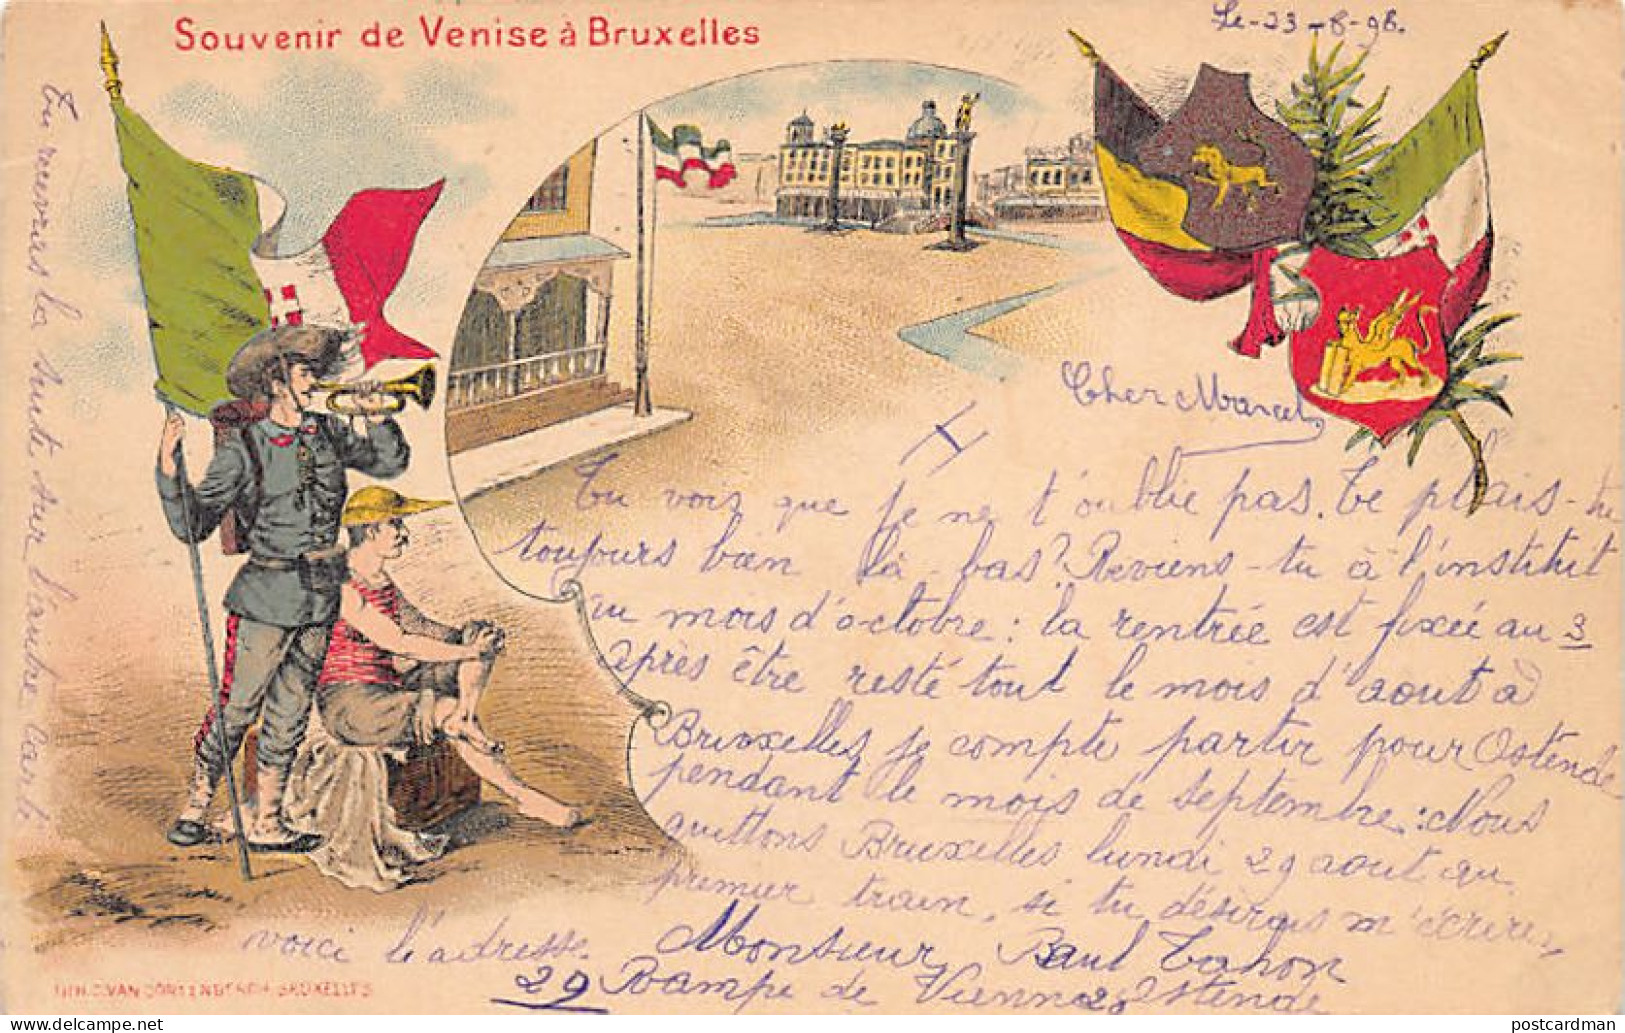 Souvenir de Venise à Bruxelles
Le-23-8-98.
Cher Marcel
Tu vois que je ne t'oublie pas. Te plais-tu
toujours bien là-bas? Reviens-tu à l'institut
au mois d'octobre: la rentrée est fixée au 3
après être resté tout le mois d'aout à
Bruxelles je compte partir pour Ostende
pendant le mois de septembre: Nous
quittons Bruxelles lundi 29 aout au
premier train, si tu désirais m'écrire,
voici l'adresse. Monsieur Paul Tahon
29 Rampe de Vienne Ostende
Tu recevras la suite sur l'autre carte
LITH. C. VAN CORTENBERGH BRUXELLES
postcardman